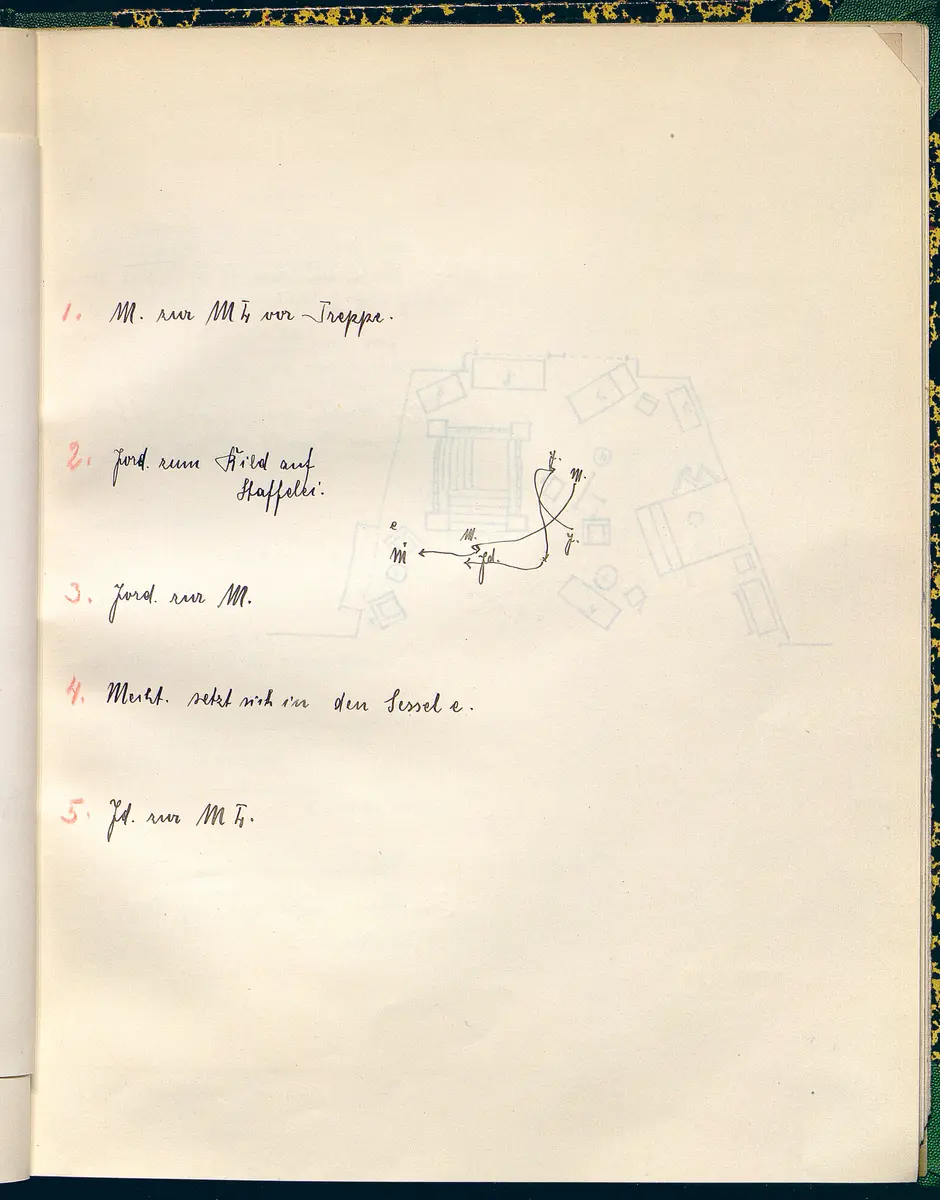 1. M. zur M. vor Treppe.
2. Jord. zum Bild auf
Staffelei.
J.
M.
e
M.
J.
M
Jd.
3. Jord. zur M.
4. Mecht. setzt sich in den Sessel e.
5. Jd. zur M